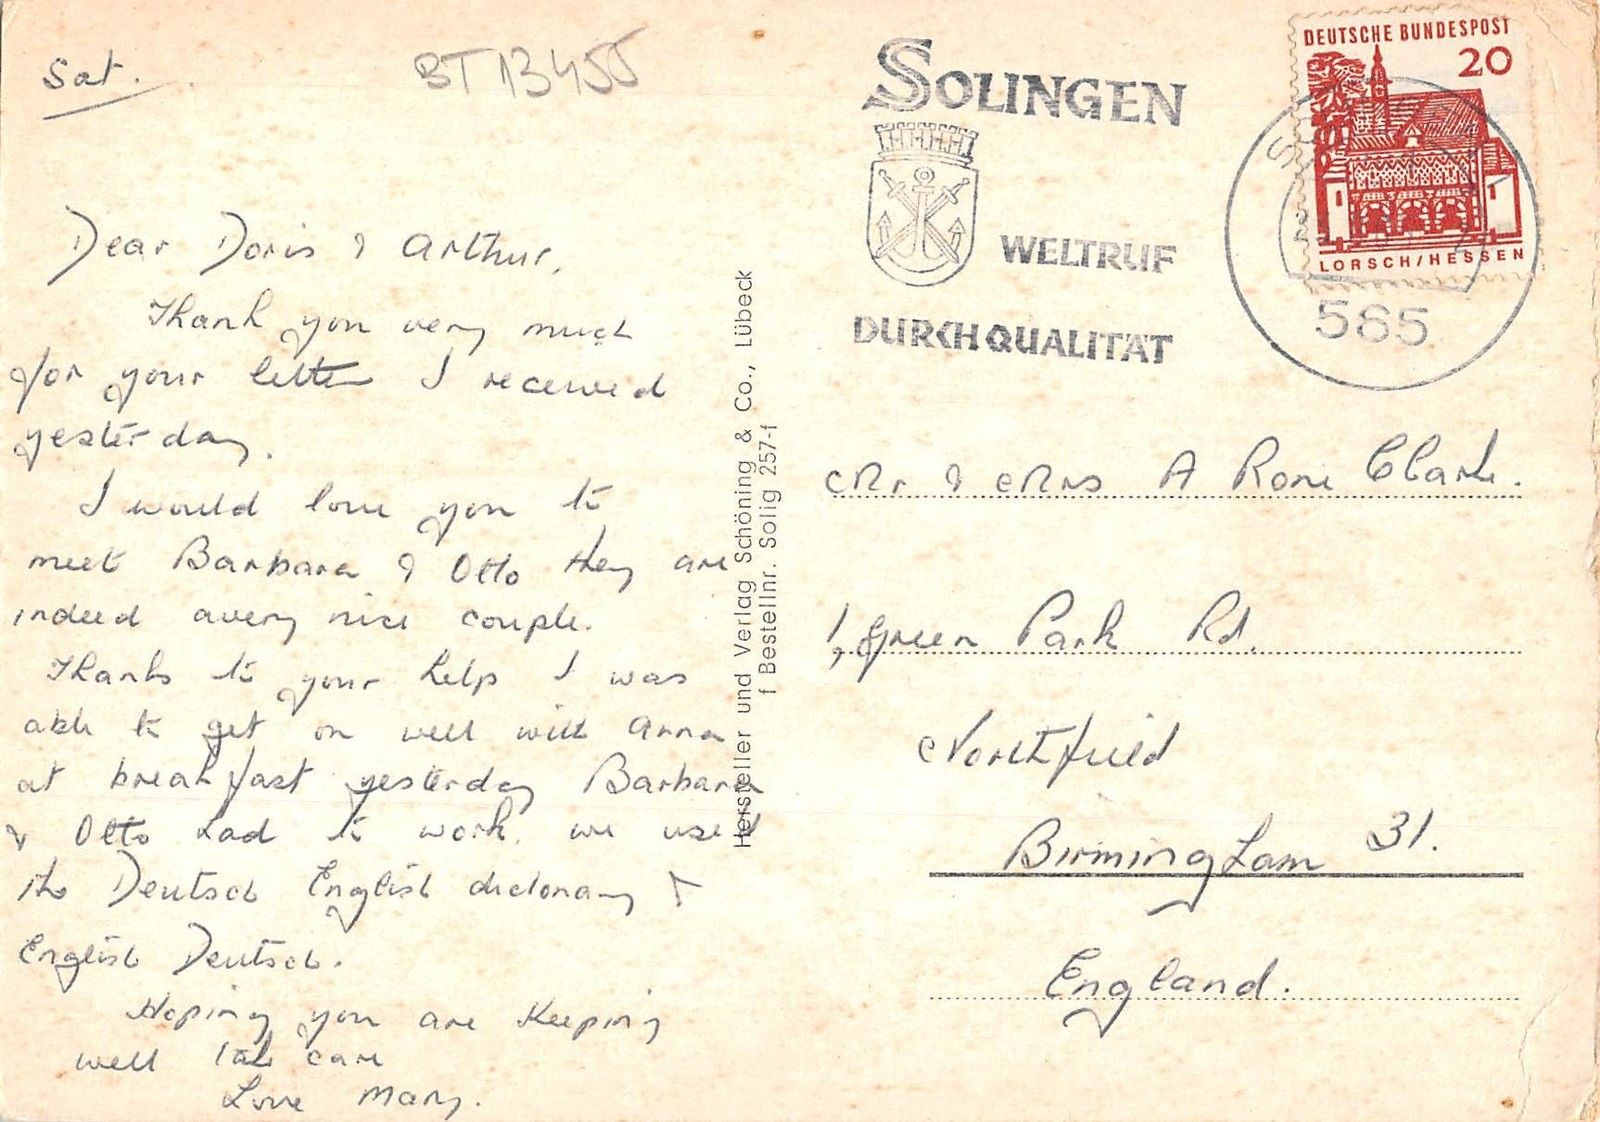 Sat.
BT 13455
Dear Doris & Arthur,
Thank you very much
for your letter I received
yesterday.
I would love you to
meet Barbara & Otto they are
indeed a very nice couple.
Thanks to your help I was
able to get on well with Anna
at breakfast yesterday Barbara
& Otto had to work. we used
the Deutsch English dictonary +
English Deutsch.
Hoping you are Keeping
well take care
Love Mary.
Hersteller und Verlag Schöning & Co., Lübeck
f Bestellnr. Solig 257-f
SOLINGEN
WELTRUF
DURCH QUALITÄT
DEUTSCHE BUNDESPOST
20
LORSCH/HESSEN
565
Mr & Mrs A Rone Clark.
1, Green Park Rd.
Northfield
Birmingham 31.
England.